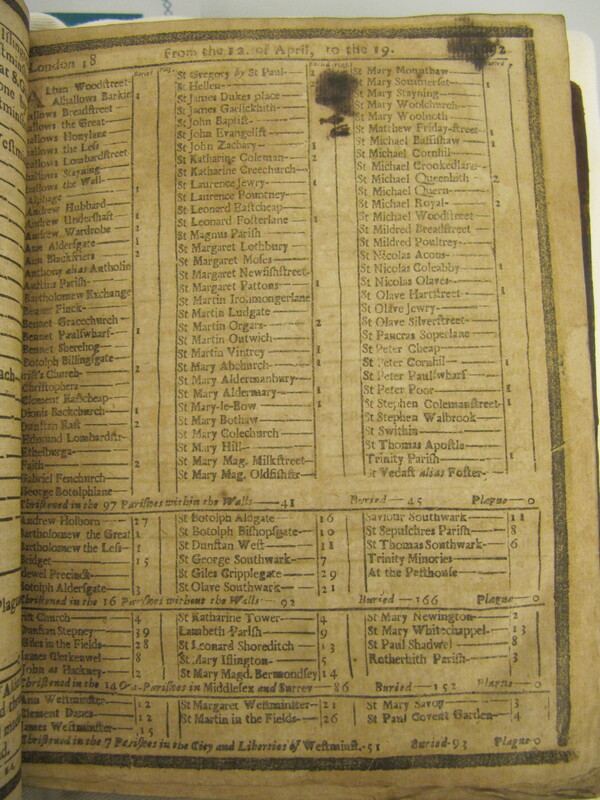 London 18 From the 12. of April, to the 19.
Alban Woodstreet
Alhallows Barkin 1
allows Breadstreet
allows the Great
allows Honylane
allows the Less
allows Lombardstreet
allows Stayning
allows the Wall 1
Alphage
Andrew Hubbard
Andrew Undershaft 1
Andrew Wardrobe 2
Ann Aldersgate 1
Ann Blackfriers 2
Anthony alias Antholin
Austins Parish
Bartholomew Exchange
Bennet Finck
Bennet Gracechurch
Bennet Paulswharf 1
Bennet Sherehog
Botolph Billingsgate
rist's Church 2
Christophers
Clement Eastcheap
Dionis Backchurch 1
Dunstan East 2
Edmund Lombardstr
Ethelburga
Faith 2
Gabriel Fenchurch
George Botolphlane
St Gregory by St Paul 2
St Hellen
St James Dukes place
St James Garlickhith
St John Baptist
St John Evangelist
St John Zachary 1
St Katharine Coleman 2
St Katharine Creechurch
St Laurence Jewry 1
St Laurence Pountney
St Leonard Eastcheap
St Leonard Fosterlane 1
St Magnus Parish
St Margaret Lothbury
St Margaret Moses
St Margaret Newfishstreet
St Margaret Pattons 1
St Martin Ironmongerlane
St Martin Ludgate
St Martin Orgars 2
St Martin Outwich
St Martin Vintrey 1
St Mary Abchurch 1
St Mary Aldermanbury
St Mary Aldermary 1
St Mary-le-Bow 1
St Mary Bothaw
St Mary Colechurch
St Mary Hill
St Mary Mag. Milkstreet
St Mary Mag. Oldfishstr
St Mary Mounthaw
St Mary Somerset 1
St Mary Stayning
St Mary Woolchurch
St Mary Woolnoth
St Matthew Friday-street 1
St Michael Bassishaw 1
St Michael Cornhil
St Michael Crookedlane
St Michael Queenhith 2
St Michael Quern
St Michael Royal 2
St Michael Woodstreet
St Mildred Breadstreet
St Mildred Poultrey
St Nicolas Acons
St Nicolas Coleabby 1
St Nicolas Olaves
St Olave Hartstreet 1
St Olave Jewry
St Olave Silverstreet
St Pancras Soperlane
St Peter Cheap
St Peter Cornhil 1
St Peter Paulswharf
St Peter Poor 1
St Stephen Colemanstreet 1
St Stephen Walbrook
St Swithin
St Thomas Apostle
Trinity Parish 1
St Vedast alias Foster
Christened in the 97 Parishes within the Walls 41 Buried 45 Plague 0
Andrew Holborn 27
Bartholomew the Great 1
Bartholomew the Less 1
Bridget 15
dewel Precinct
Botolph Aldersgate 3
St Botolph Aldgate 16
St Botolph Bishopsgate 10
St Dunstan West 11
St George Southwark 7
St Giles Cripplegate 29
St Olave Southwark 21
Saviour Southwark 11
St Sepulchres Parish 8
St Thomas Southwark 6
Trinity Minories
At the Pesthouse
Christened in the 16 Parishes without the Walls 92 Buried 166 Plague 0
rist Church 4
Dunstan Stepney 39
Giles in the Fields 28
James Clerkenwel 8
John at Hackney 2
St Katharine Tower 4
Lambeth Parish 9
St Leonard Shoreditch 13
St Mary Islington 5
St Mary Magd. Bermondsey 14
St Mary Newington 2
St Mary Whitechappel 13
St Paul Shadwel 8
Rotherhith Parish 3
Christened in the 14 Out-Parishes in Middlesex and Surrey 86 Buried 152 Plague 0
Ann Westminster 12
Clement Danes 12
James Westminster 15
St Margaret Westminster 21
St Martin in the Fields 26
St Mary Savoy 3
St Paul Covent Garden 4
Christened in the 7 Parishes in the City and Liberties of Westminst. 51 Buried 93 Plague 0